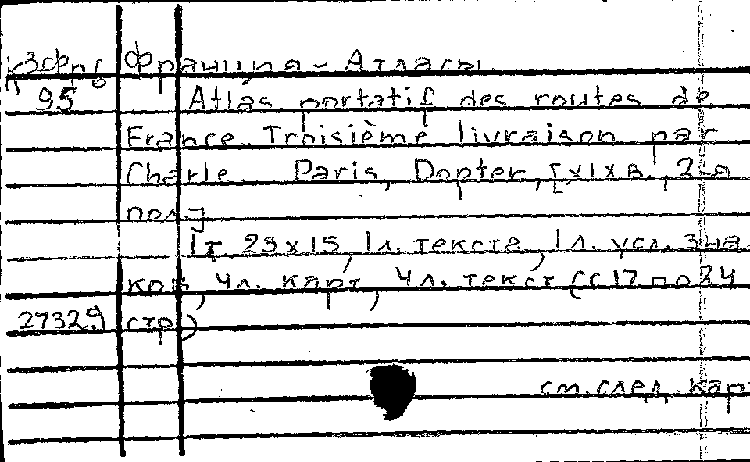 К3Фр6 Франция - Атласы
95 Atlas portatif des routes de
France. Troisième livraison par
Charle. Paris, Dopter, [XIX в., 2-я
пол.]
1т 23х15, 1л. текста, 1л. усл. зна
ков, 4л. карт, 4л. текст (с 17 по 24
27329 стр)
см. след. кар